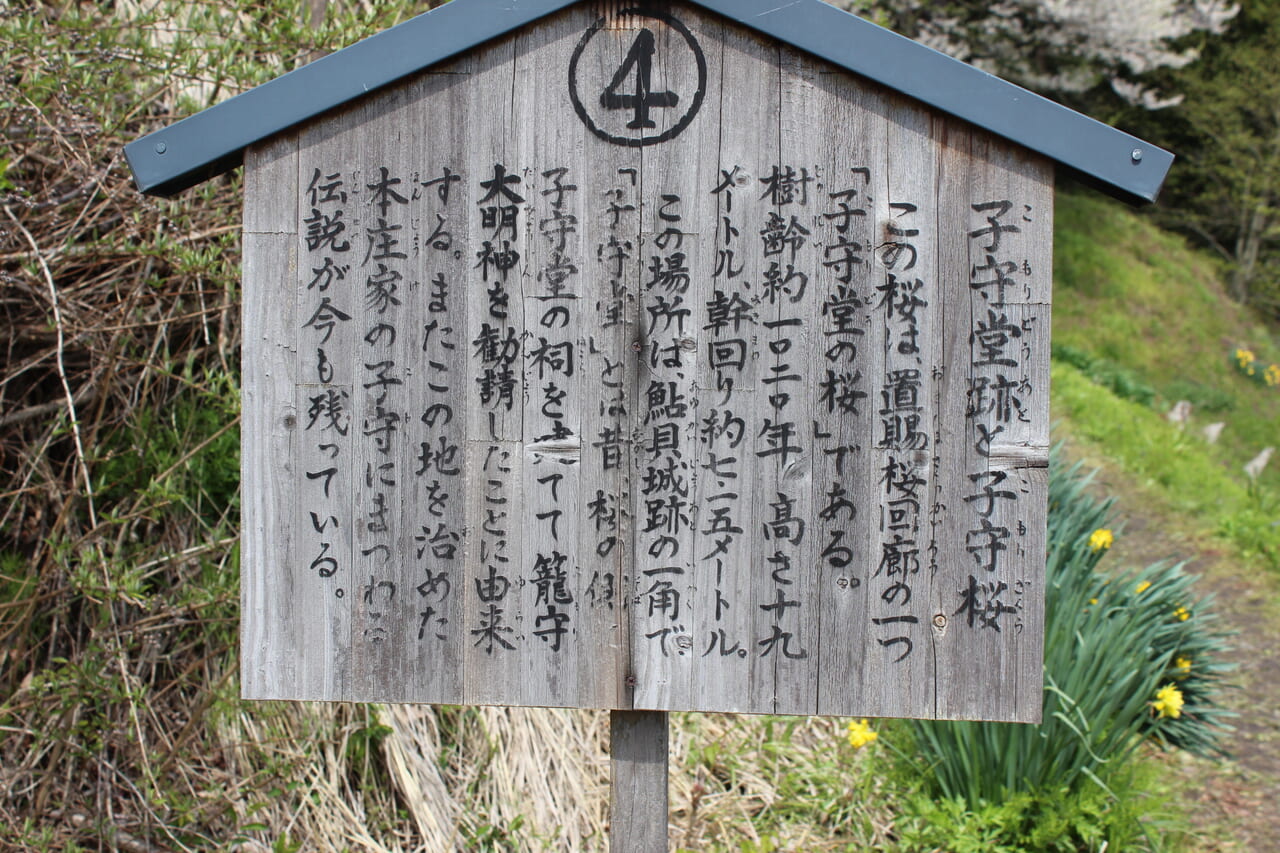 ④
子守堂跡と子守桜
この桜は、置賜桜回廊の一つ
「子守堂の桜」である。
樹齢約一〇二〇年 高さ十九
メートル、幹回り約七・一五メートル。
この場所は、鮎貝城跡の一角で
「子守堂」とは昔 桜の
子守堂の祠を てて 籠守
大明神を勧請したことに由来
する。またこの地を治めた
本庄家の子守にまつわる
伝説が今も残っている。